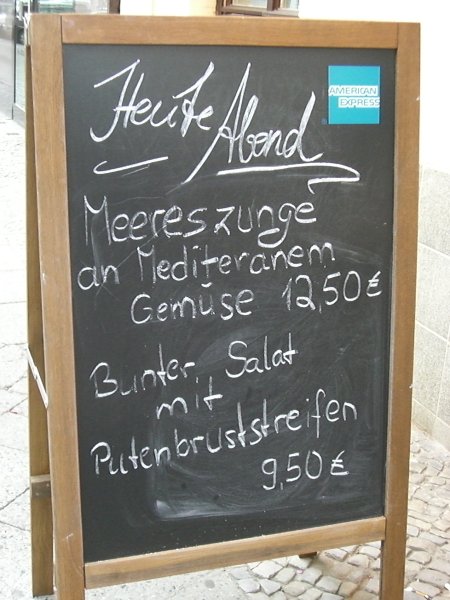 Heute Abend
AMERICAN
EXPRESS
Meereszunge
an Mediteranem
Gemüse 12,50 €
Bunter Salat
mit
Putenbruststreifen
9,50 €